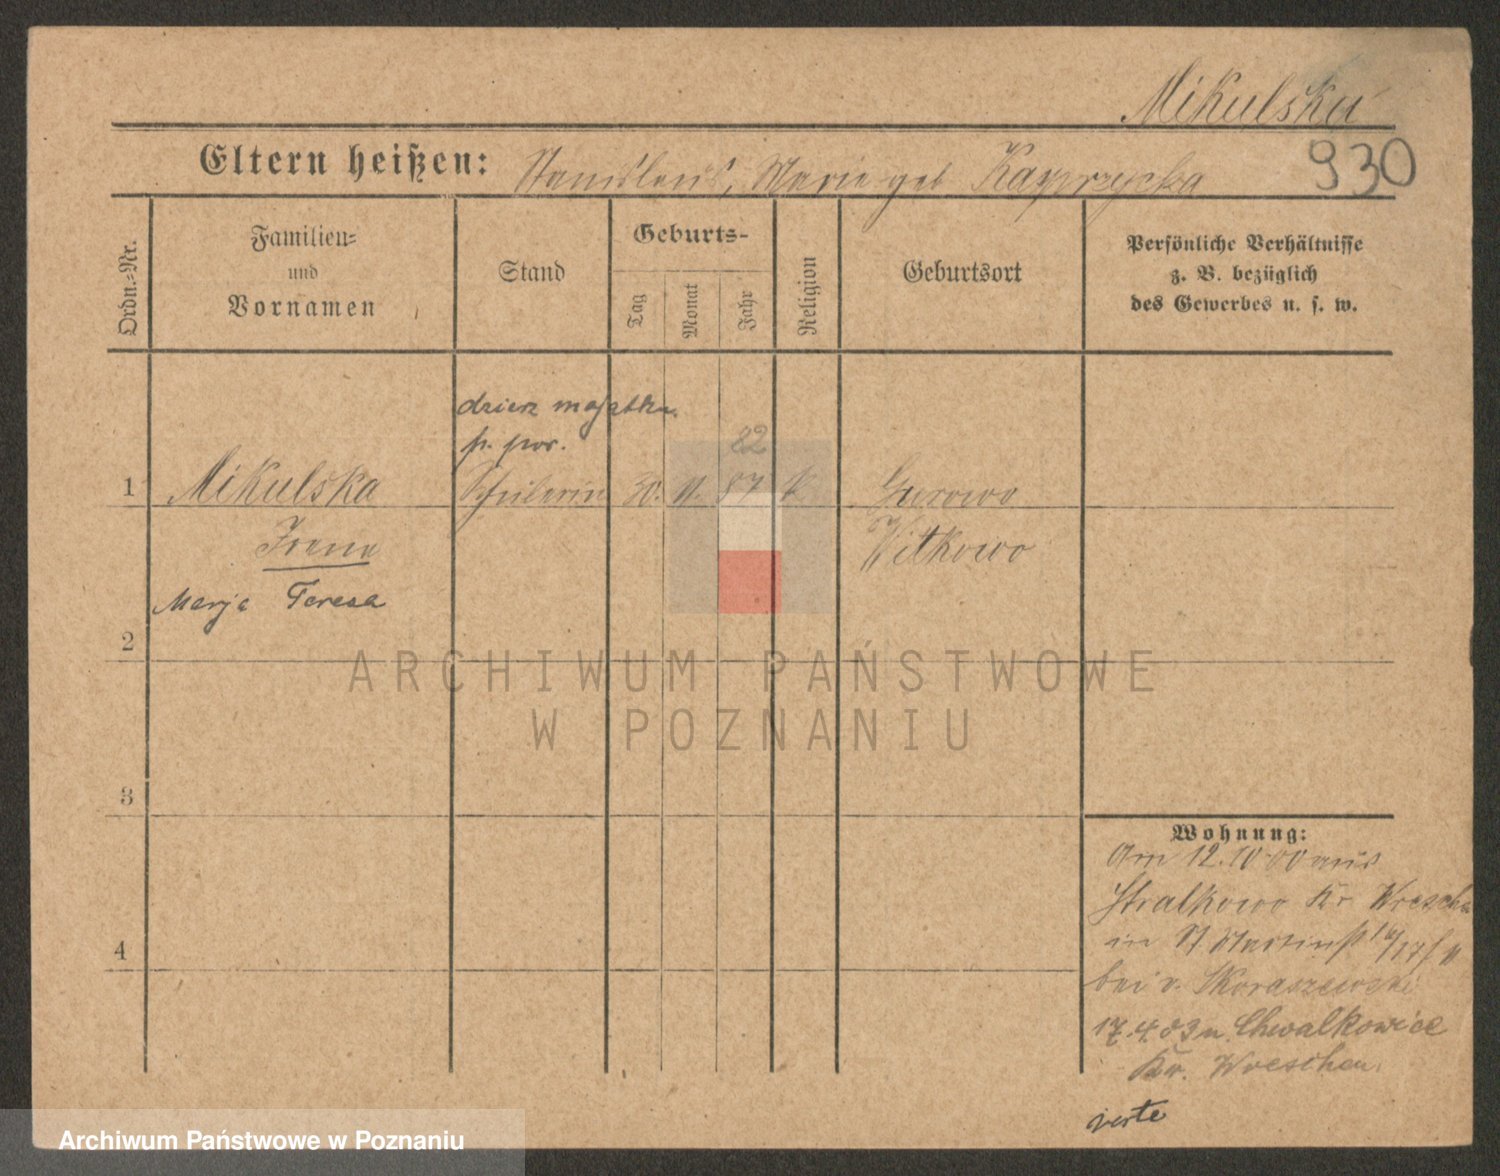 Mikulska
930
Eltern heißen: Stanislaus, Marie geb Kasprzycka
Ordn.-Nr.
Familien-
und
Vornamen
Stand
Geburts-
Tag
Monat
Jahr
Religion
Geburtsort
Persönliche Verhältnisse
z. B. bezüglich
des Gewerbes u. s. w.
dzierz majątku
p. por.
82
1 Mikulska Schülerin 30. 11. 87 k Gurowo
Irena Witkowo
Marja Teresa
2
ARCHIWUM PAŃSTWOWE
W POZNANIU
3
Wohnung:
Am 12.10.00 aus
Stralkowo Kr Wreschen
in St. Martinst 16/17
bei v. Skoraszewski
17.4.03 n. Chwalkowice
Kr. Wreschen.
4
verte
Archiwum Państwowe w Poznaniu